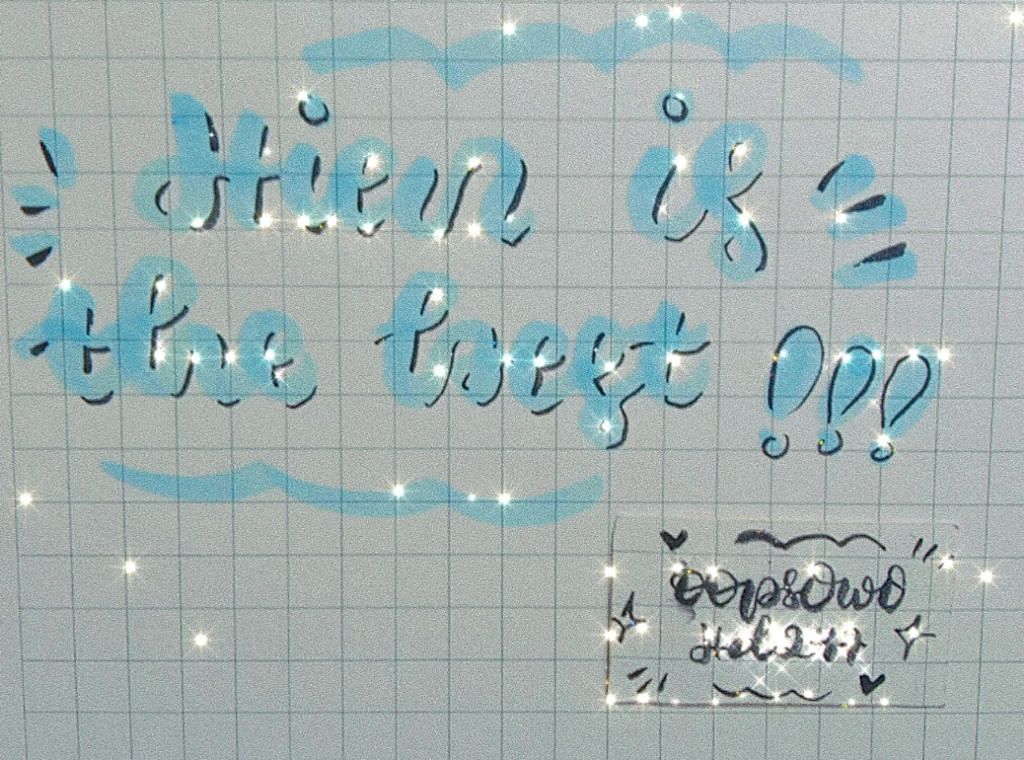 Hien is
the best !!!
oopsOwo